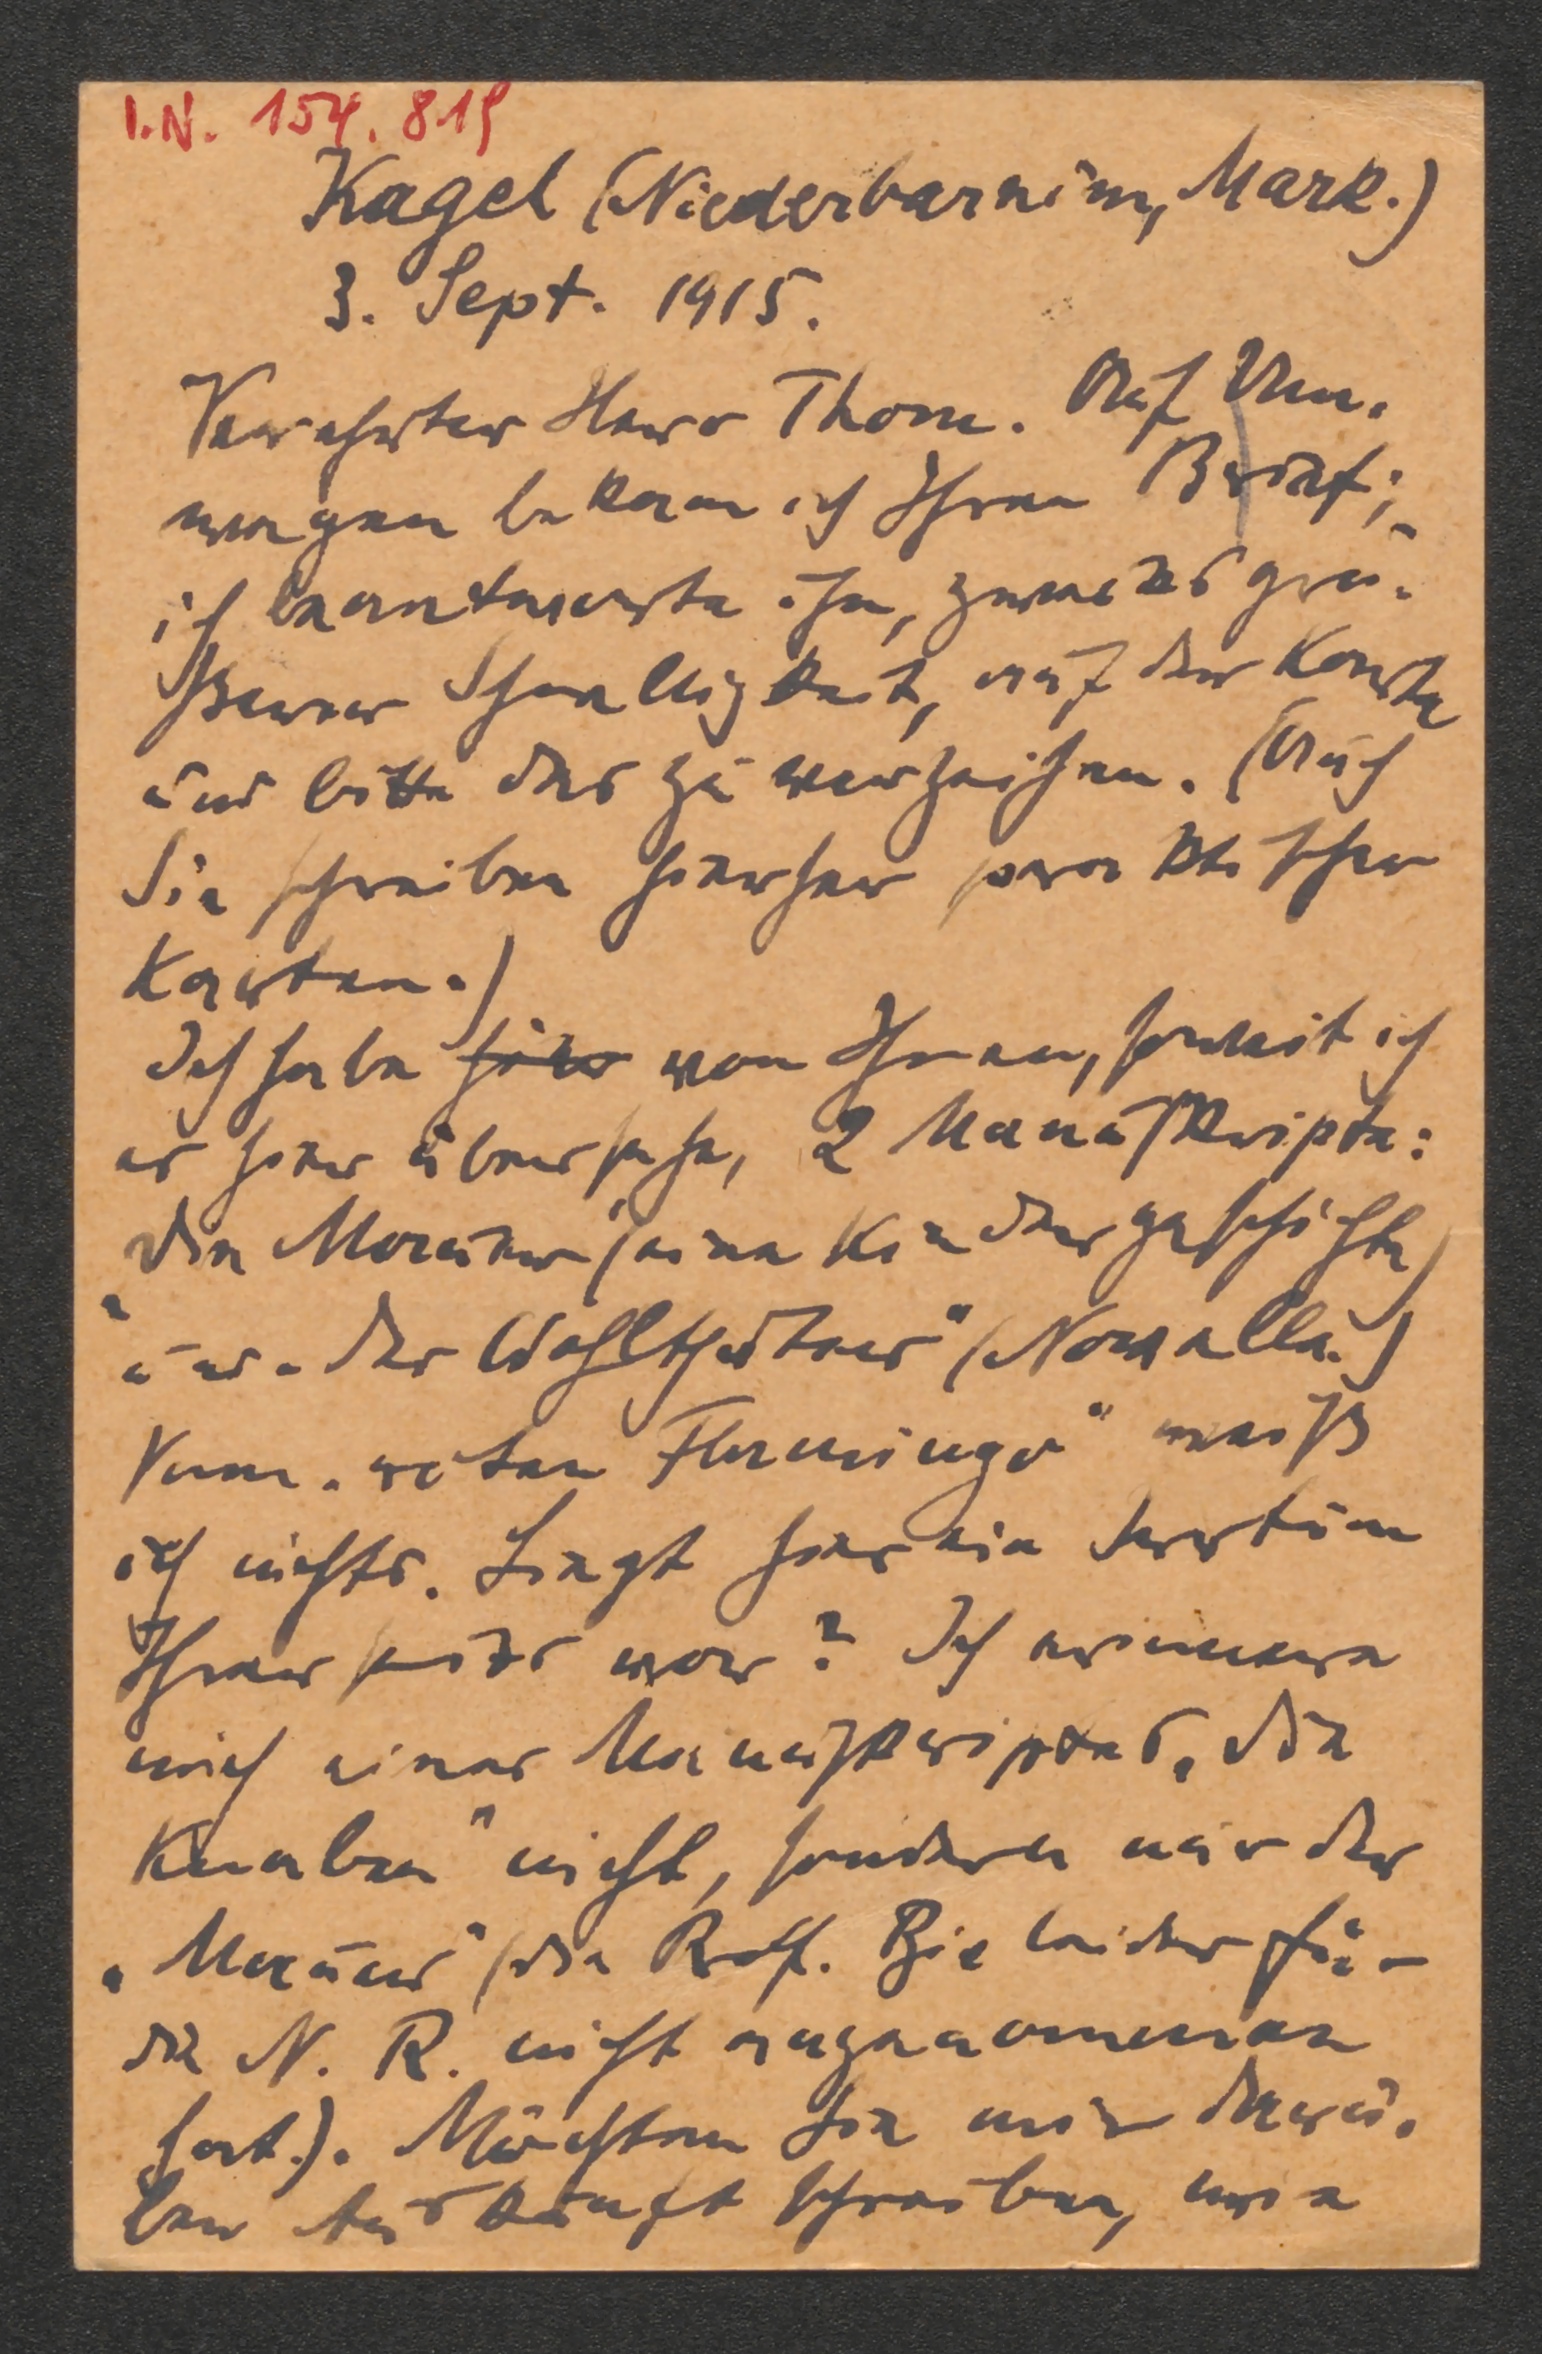 I.N. 154.819
Kagel (Niederbarnim, Mark.)
3. Sept. 1915.
Verehrter Herr Thom. Auf Um-
wegen bekam ich Ihren Brief;
ich beantworte ihn, zwecks grö-
sserer Schnelligkeit, auf der Karte
und bitte das zu verzeihen. (Auch
Sie schreiben hierher praktischer
Karten.)
Ich habe hier von Ihnen, soweit ich
es hier übersehe, 2 Manuskripte:
„Die Mauer" (eine Kindergeschichte)
und „Der Wohlthäter" (Novelle.)
Vom „roten Flamingo" weiß
ich nichts. Liegt hier ein Irrtum
Ihrerseits vor? Ich erinnere
mich eines Manuskriptes „Die
Knaben" nicht, sondern nur der
„Mauer" (die Prof. Bie leider für
die N. R. nicht angenommen
hat.). Möchten Sie mir darü-
ber Auskunft schreiben, wie